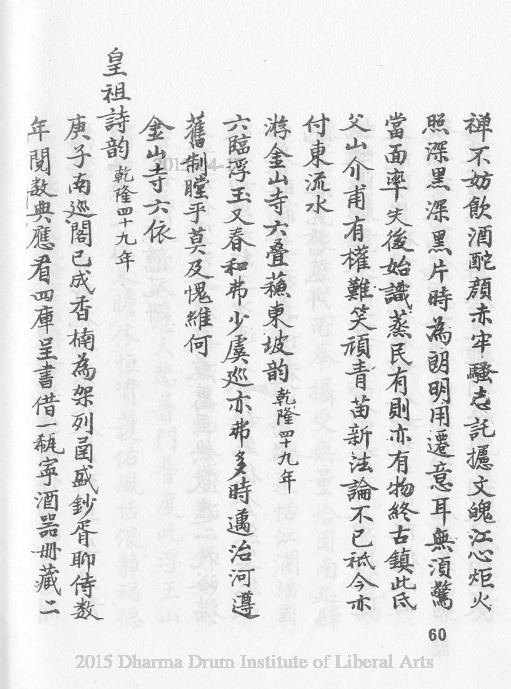 禅不妨飲酒酡顔赤牢騷志託攄文魄江心炬火
照深黑深黑片時為朗明用遷意耳無湏驚
當面率失後始識蒸民有則亦有物終古鎮此氐
父山介甫有權難笑頑青苗新法論不已祗今亦
付東流水
游金山寺六叠蘓東坡韵乾隆四十九年
六臨浮玉又春和弗少虞巡亦弗多時邁治河遵
舊制瞠乎莫及愧維何
金山寺六依
皇祖詩韵乾隆四十九年
庚子南巡閣已成香楠為架列函盛鈔胥聊待数
年閱教典應看四庫呈書借一瓻寧酒器册藏二
60
2015 Dharma Drum Institute of Liberal Arts